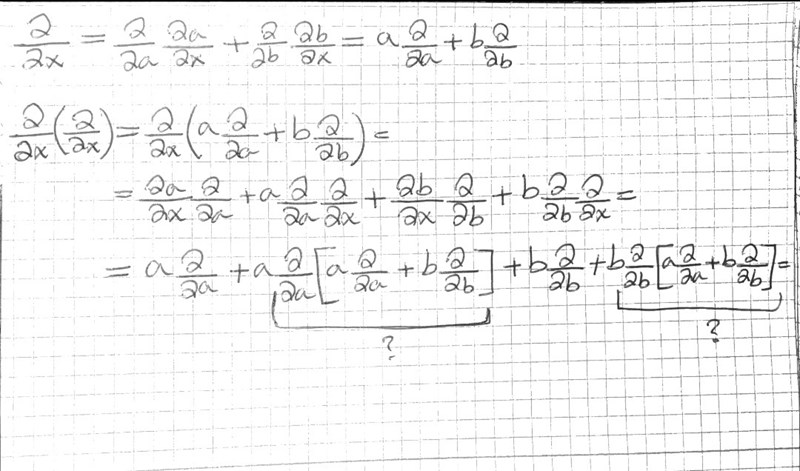 ∂/∂x = ∂/∂a ∂a/∂x + ∂/∂b ∂b/∂x = a ∂/∂a + b ∂/∂b
∂/∂x (∂/∂x) = ∂/∂x (a ∂/∂a + b ∂/∂b) =
= ∂a/∂x ∂/∂a + a ∂/∂a ∂/∂x + ∂b/∂x ∂/∂b + b ∂/∂b ∂/∂x =
= a ∂/∂a + a ∂/∂a [a ∂/∂a + b ∂/∂b] + b ∂/∂b + b ∂/∂b [a ∂/∂a + b ∂/∂b] =
? ?